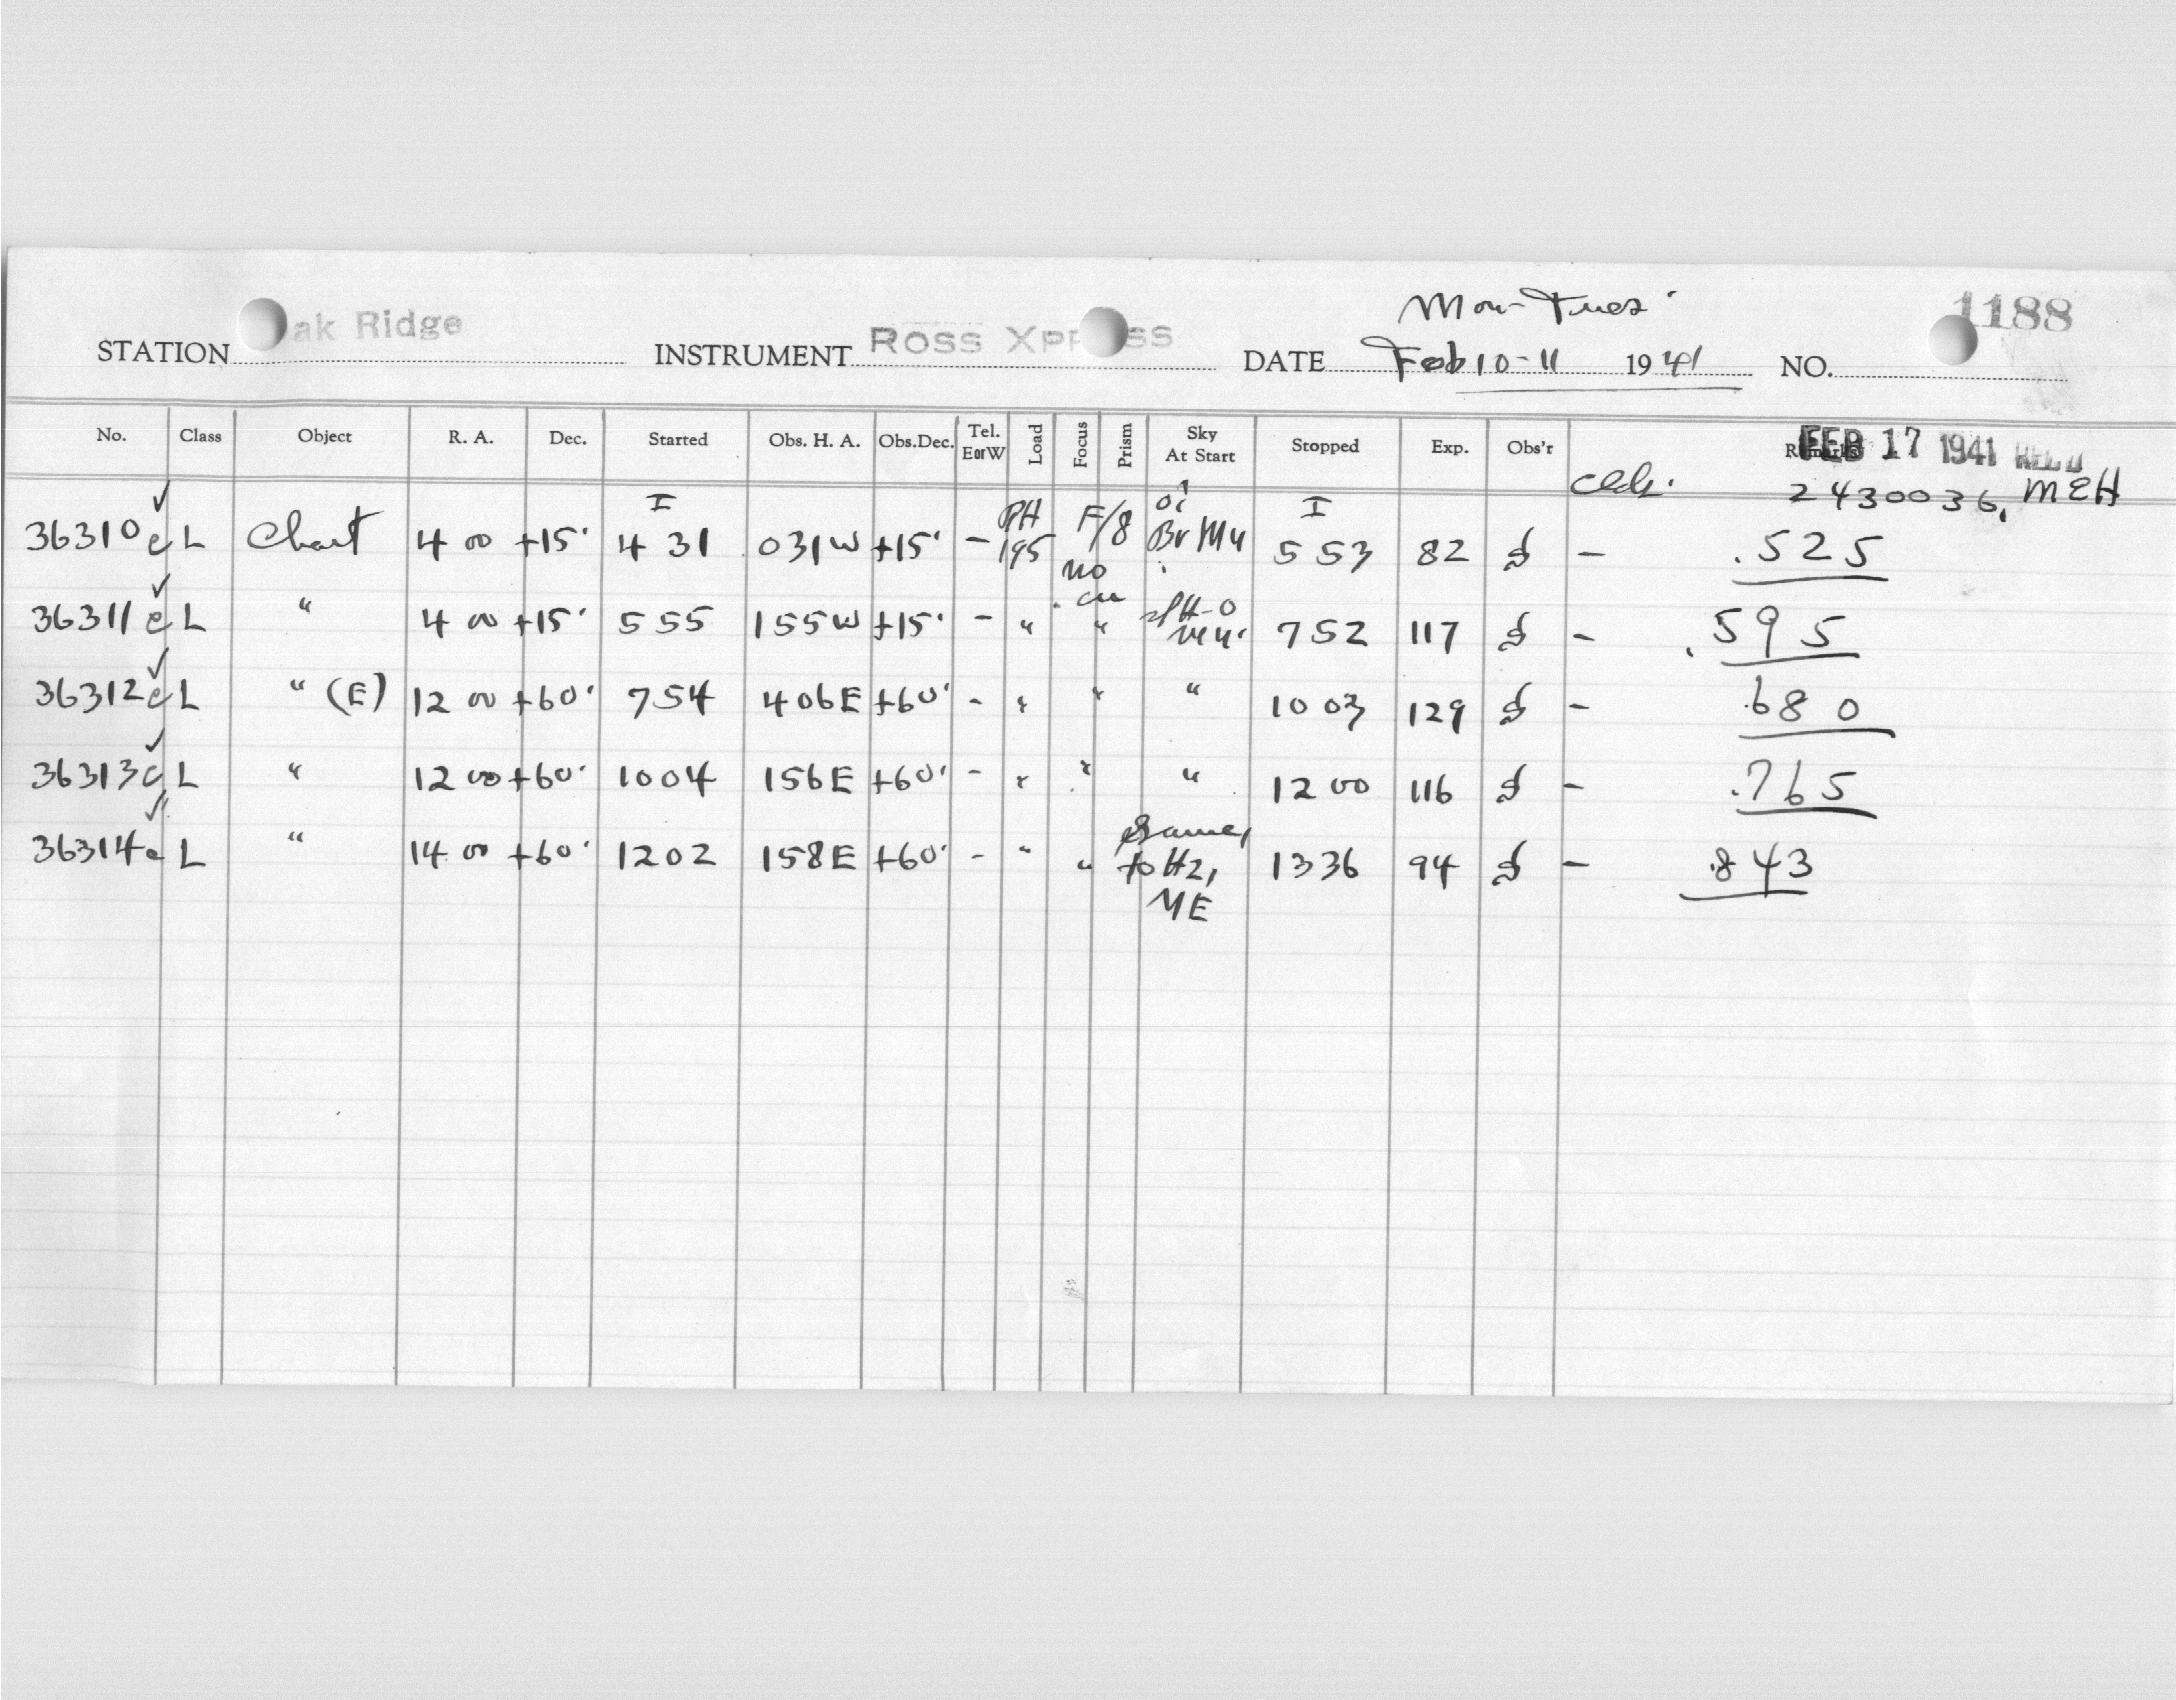 Mon-Tues.
STATION ak Ridge INSTRUMENT ROSS XPR SS DATE Feb 10-11 1941 NO. 1188
No. Class Object R. A. Dec. Started Obs. H. A. Obs.Dec. Tel. EorW Load Focus Prism Sky At Start Stopped Exp. Obs'r Remarks
FEB 17 1941 REC'D
2430036. MEH
36310 c L Chart 4 00 +15° I 4 31 031W +15° - PH 195 F/8 no Br M4 I 5 53 82 - .525
36311 c L " 4 00 +15° 5 55 155W +15° - " " 7 52 117 - .595
36312 c L " (E) 12 00 +60° 7 54 406E +60° - " " " 10 03 129 - .680
36313 c L " 12 00 +60° 10 04 156E +60° - " " " 12 00 116 - .765
36314 c L " 14 00 +60° 12 02 158E +60° - " " Same, to H2, ME 13 36 94 - .843